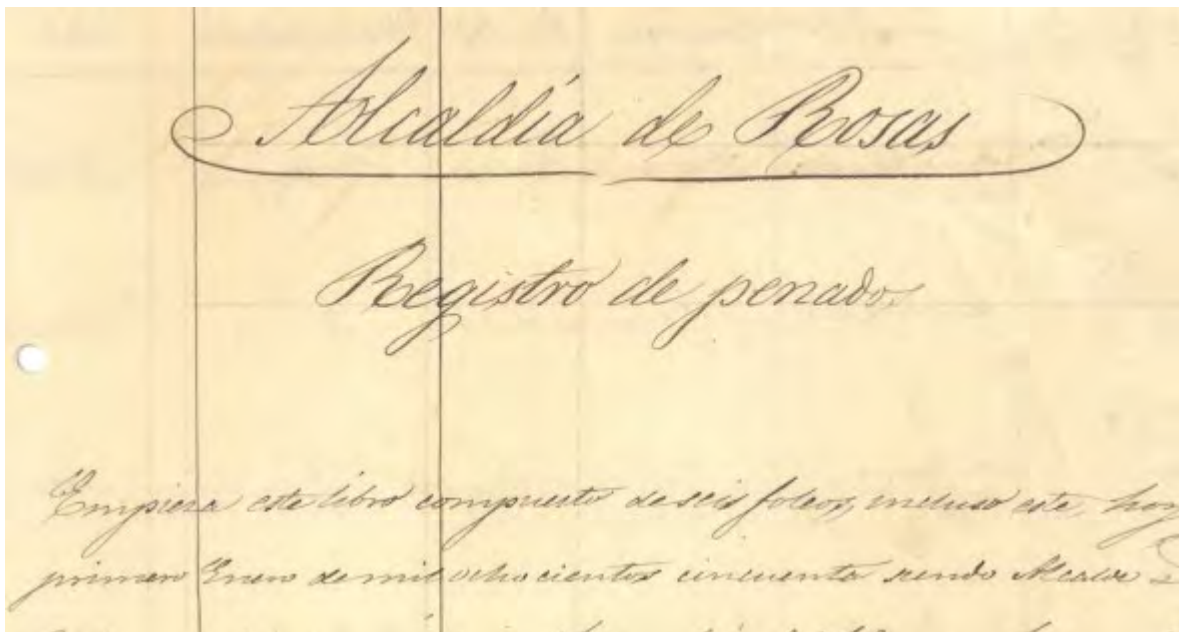 Alcaldía de Rosas
Registro de penados
Empieza este libro compuesto de seis folios, incluso este, hoy
primero Enero de mil ochocientos cincuenta siendo Alcalde